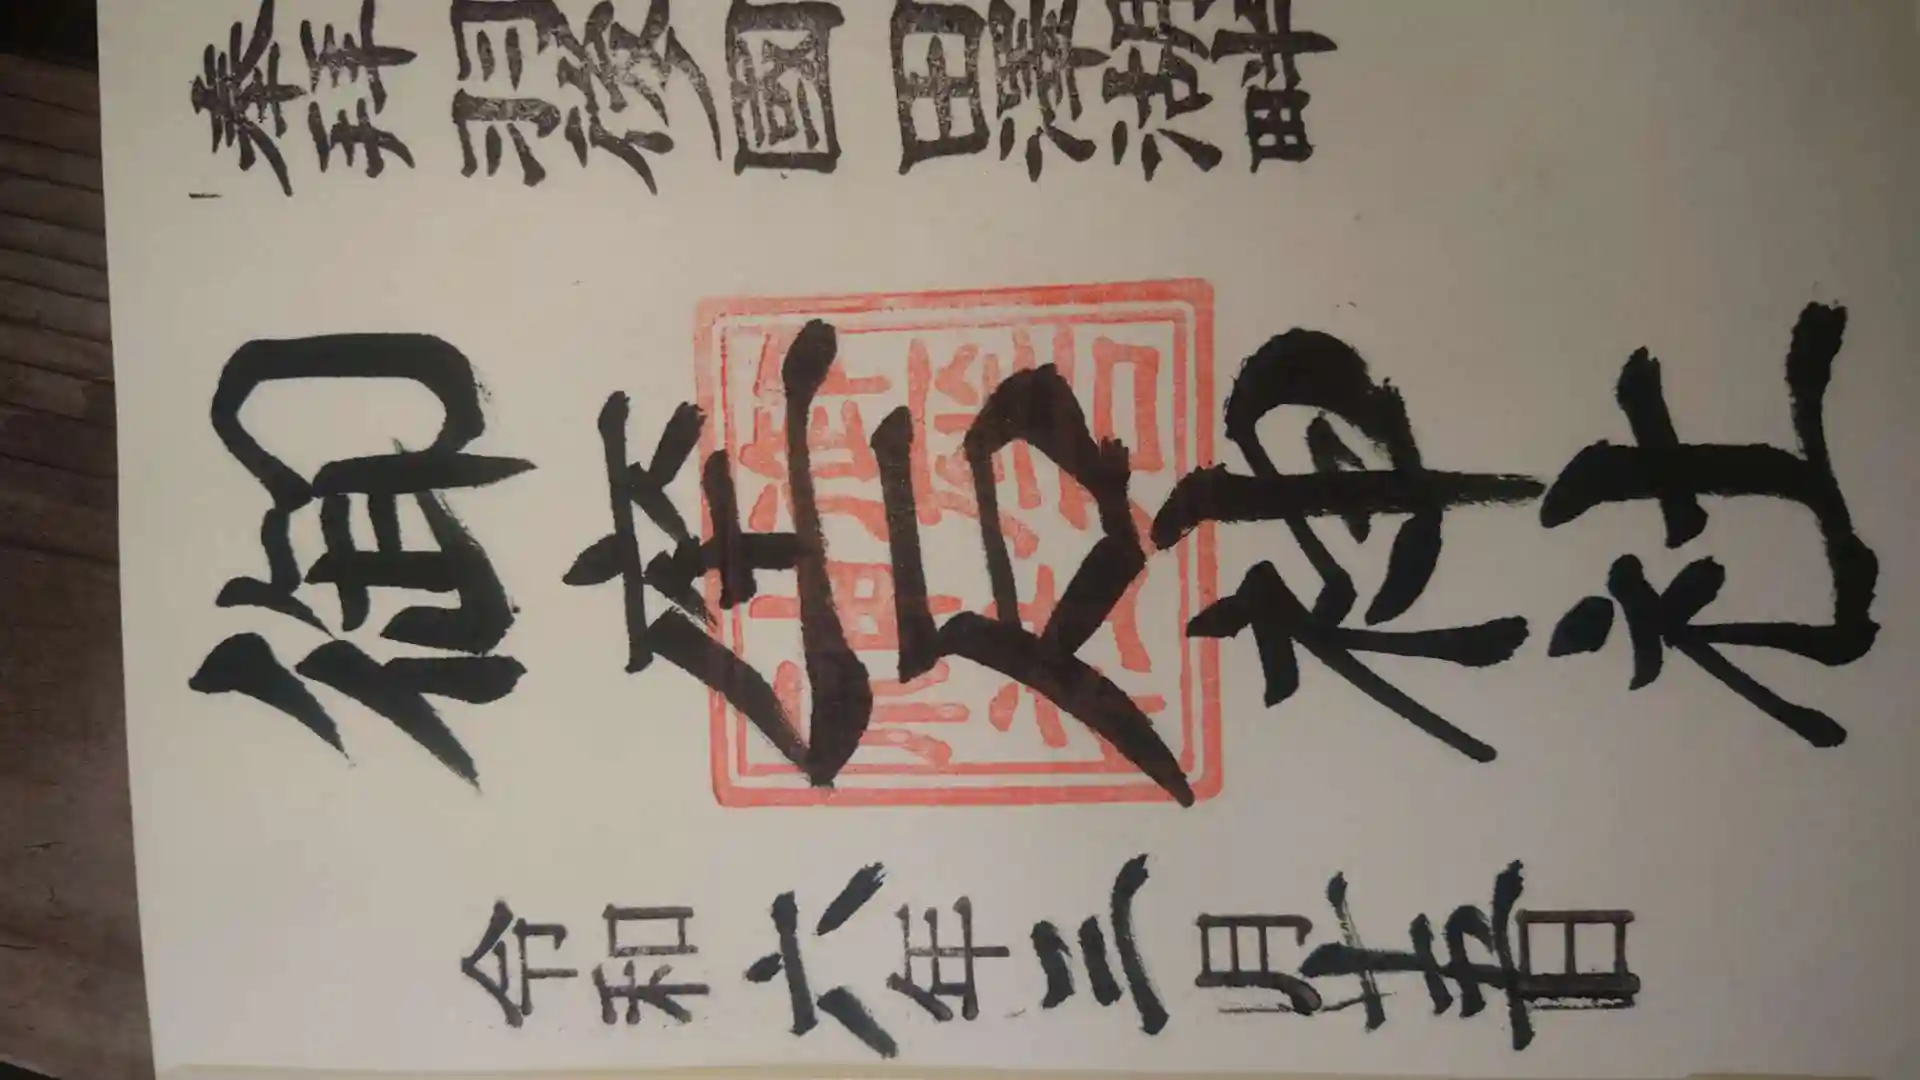 奉拝　羽後國　田澤湖畔
御座石神社
令和六年三月十五日